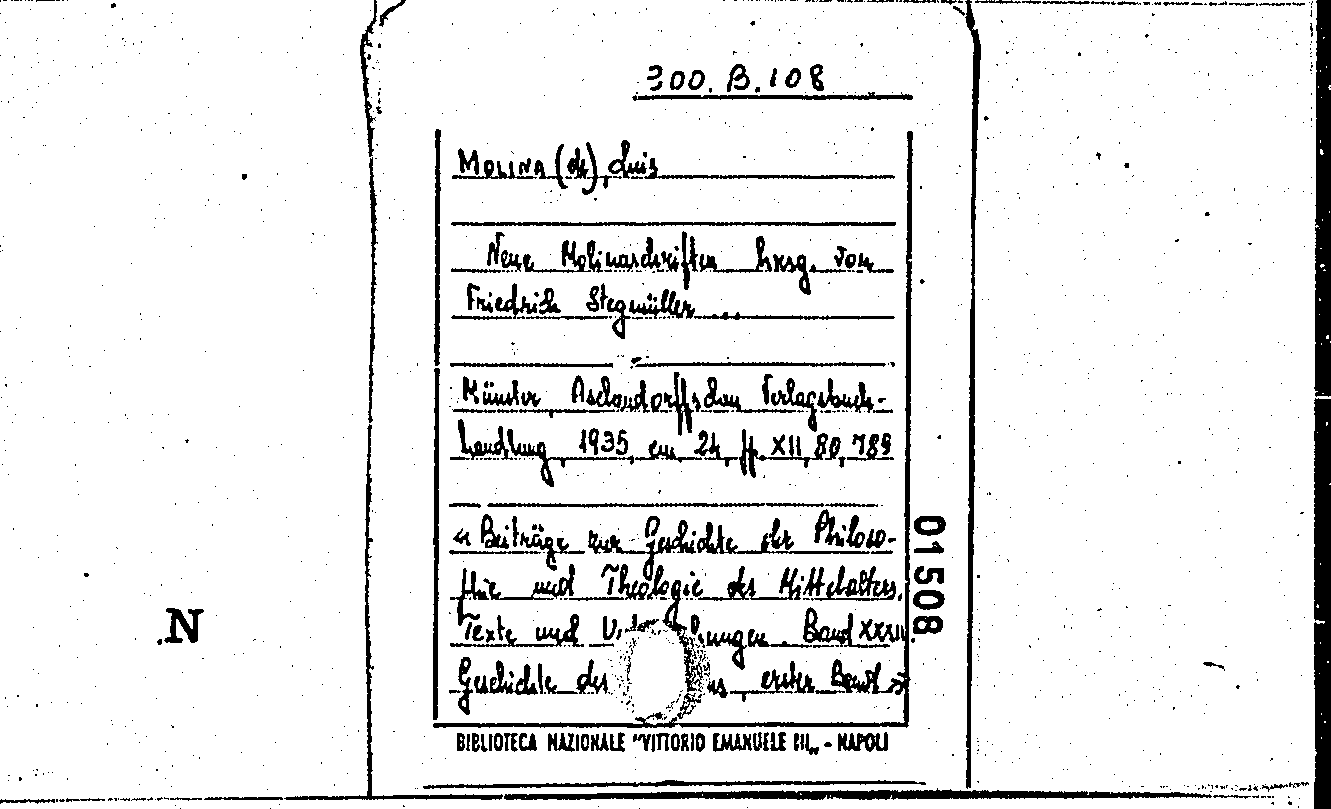 300. B. 108
MOLINA (de), Luis
Neue Molinaschriften hrsg. von
Friedrich Stegmüller ...
Münster, Aschendorffschen Verlagsbuch-
handlung, 1935, cm. 24, pp. XII, 80, 789
« Beiträge zur Geschichte der Philoso-
phie und Theologie des Mittelalters.
Texte und Band XXXII.
Geschichte des erster Band »
01508
N
BIBLIOTECA NAZIONALE "VITTORIO EMANUELE III„ - NAPOLI